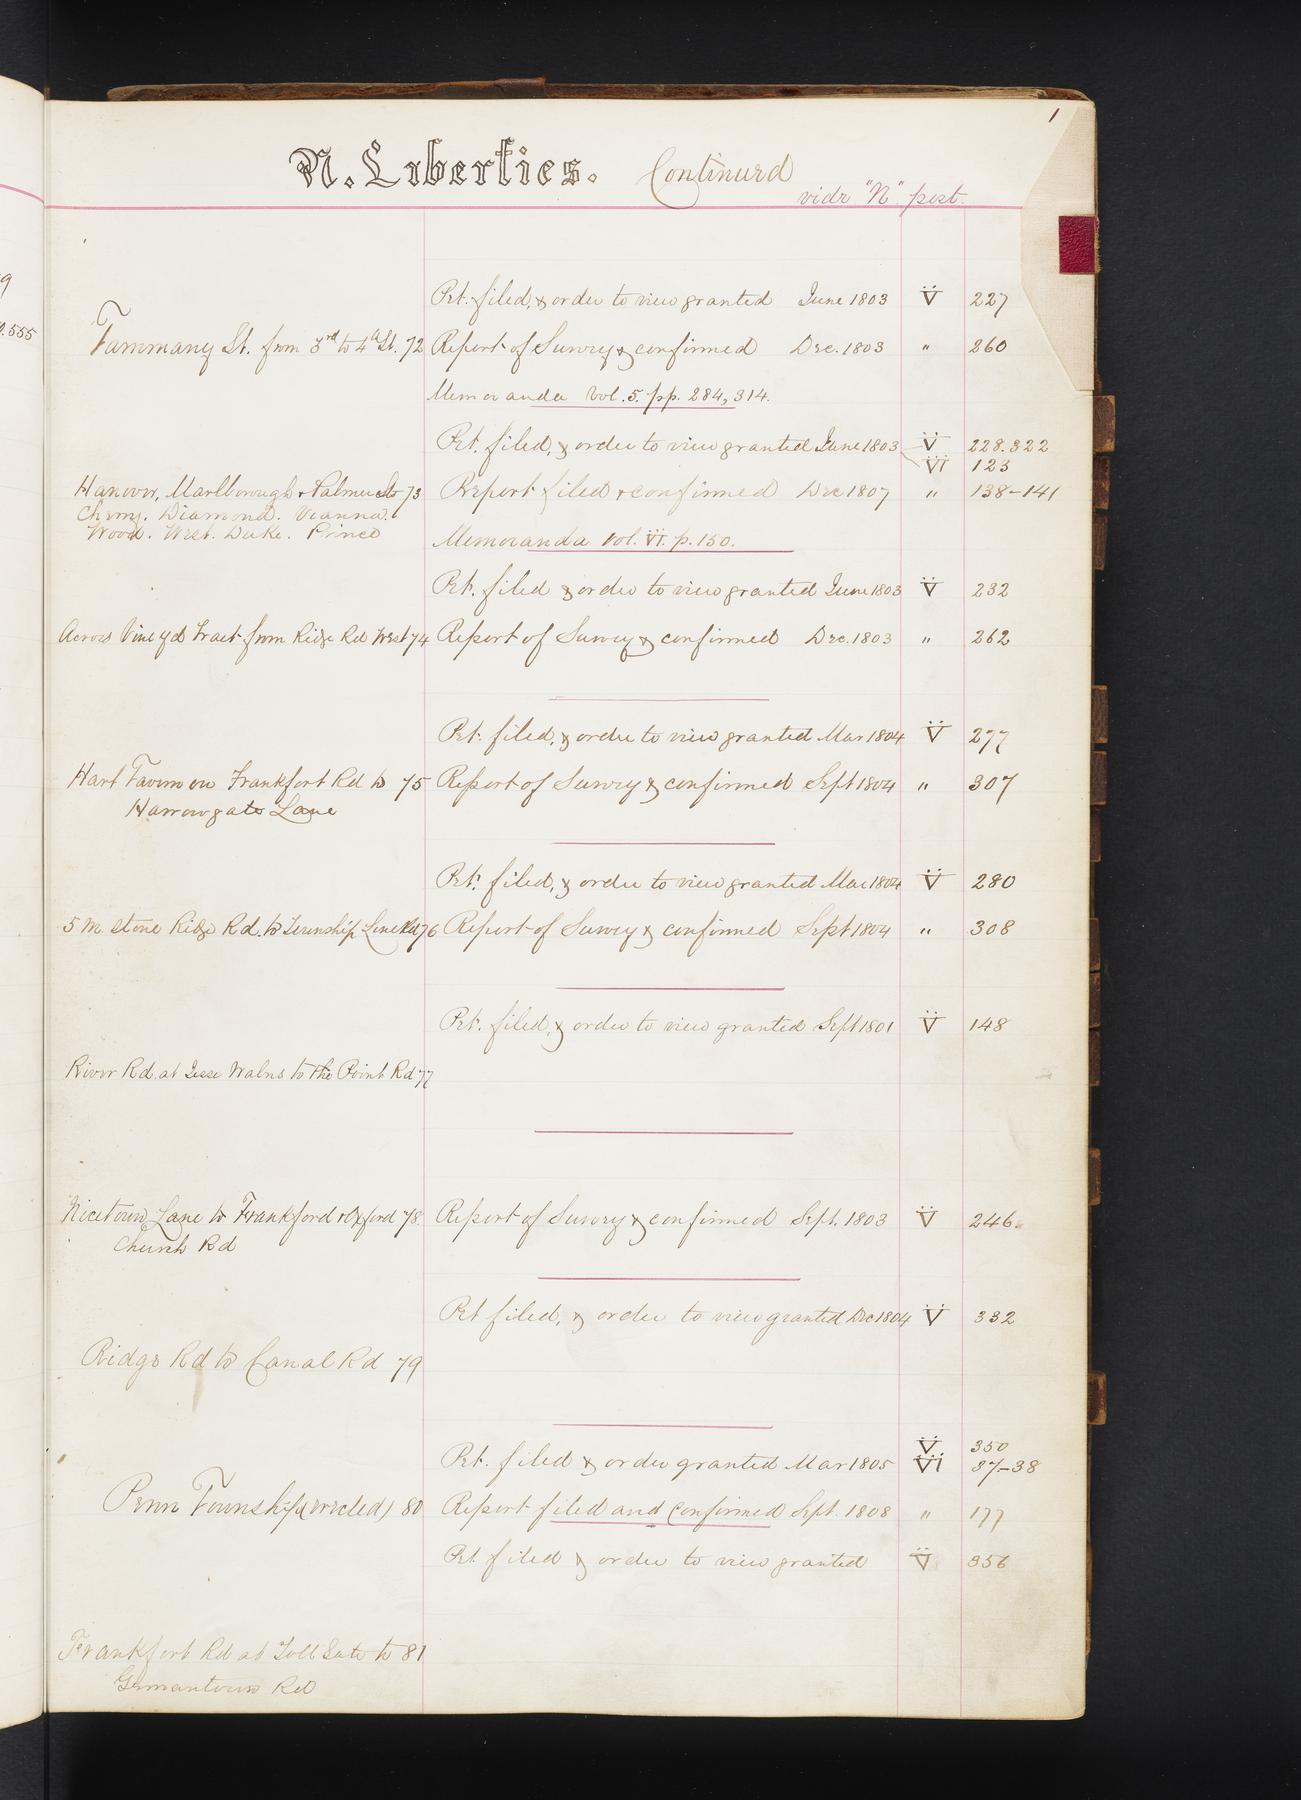 1
N. Liberties. Continued
vide "N" post.
9
p. 555
Pet. filed, & order to view granted June 1803 V 227
Tammany St. from 3rd to 4th St. 72 Report of Survey & confirmed Dec. 1803 " 260
Memoranda Vol. 5. pp. 284, 314.
Pet. filed, & order to view granted June 1803 V 228.322
VI 123
Hanover, Marlborough & Palmer Sts 73 Report filed & confirmed Dec 1807 " 138-141
Cherry. Diamond. Vianna.
Wood. West. Duke. Prince
Memoranda Vol. VI. p. 150.
Pet. filed & order to view granted June 1803 V 232
Across Vineyd Tract from Ridge Rd West 74 Report of Survey & confirmed Dec. 1803 " 262
Pet. filed, & order to view granted Mar 1804 V 277
Hart Tavern on Frankfort Rd to 75 Report of Survey & confirmed Sept 1804 " 307
Harrowgate Lane
Pet. filed, & order to view granted Mar 1804 V 280
5 M stone Ridge Rd. to Township Line Rd 76 Report of Survey & confirmed Sept 1804 " 308
Pet. filed, & order to view granted Sept 1801 V 148
River Rd. at Jesse Walns to the Point Rd 77
Nicetown Lane to Frankford & Oxford 78. Report of Survey & confirmed Sept. 1803 V 246.
Church Rd
Pet filed, & order to view granted Dec 1804 V 332
Ridge Rd to Canal Rd 79
V. 350
Pet. filed & order granted Mar 1805 VI 37-38
Penn Township (erected) 80 Report filed and Confirmed Sept. 1808 " 177
Pet filed & order to view granted V 356
Frankfort Rd at Toll Gate to 81
Germantown Rd